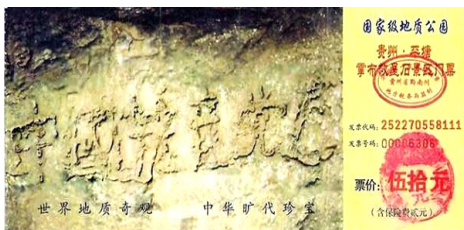 中國共产党
世界地质奇观 中华旷代珍宝
国家级地质公园
贵州·平塘
掌布藏字石景区门票
贵州省黔南州
发票代码:252270558111
发票号码:00006306
票价:伍拾元
(含保险费贰元)